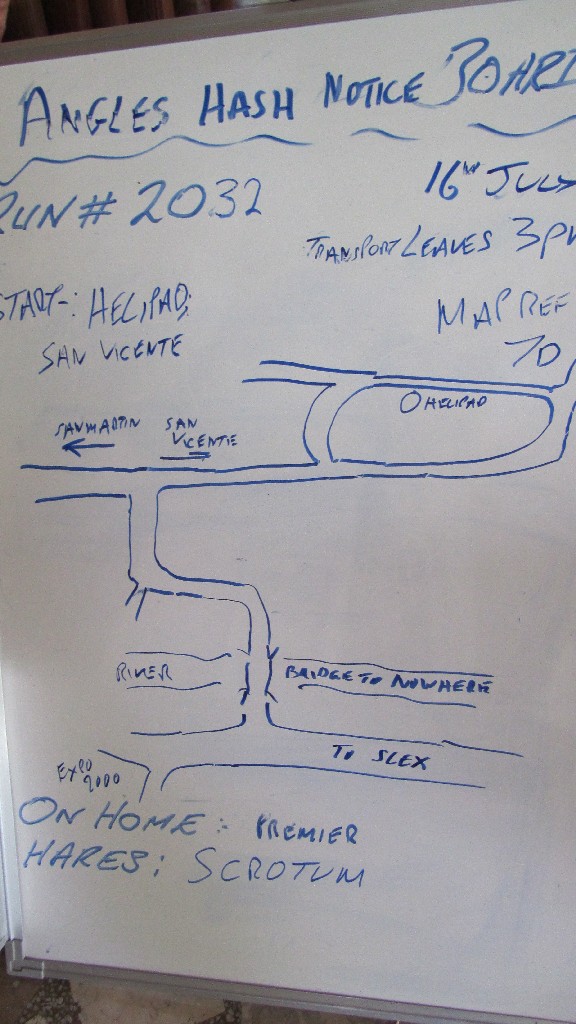 ANGLES HASH NOTICE BOARD
RUN # 2032
16TH JULY
TRANSPORT LEAVES 3PM
START-: HELIPAD;
SAN VICENTE
MAP REF
7D
HELIPAD
SAN MARTIN
SAN VICENTE
RIVER
BRIDGE TO NOWHERE
TO SLEX
EXPO 2000
ON HOME :- PREMIER
HARES: SCROTUM